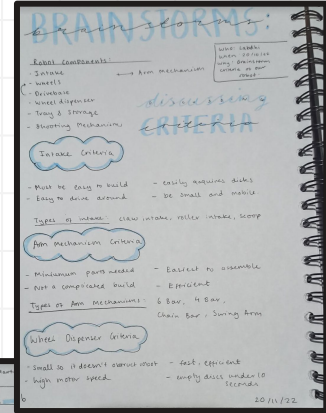 BRAINSTORMS:
brainstorms
Robot Components:
- Intake
- Wheels
- Drivebase
- Wheel dispenser
- Tray & Storage
- Shooting Mechanism
Arm mechanism
discussing
CRITERIA
Intake Criteria
- Must be easy to build
- Easy to drive around
- easily acquires disks
- be small and mobile
Types of intake: claw intake, roller intake, scoop
Arm Mechanism Criteria
- Minimum parts needed
- Not a complicated build
- Easiest to assemble
- Efficient
Types of Arm Mechanisms: 6 Bar, 4 Bar,
Chain Bar, Swing Arm
Wheel Dispenser Criteria
- Small so it doesn't obstruct
- high motor speed
- fast, efficient
- empty discs under 10
seconds
6
20/11/22